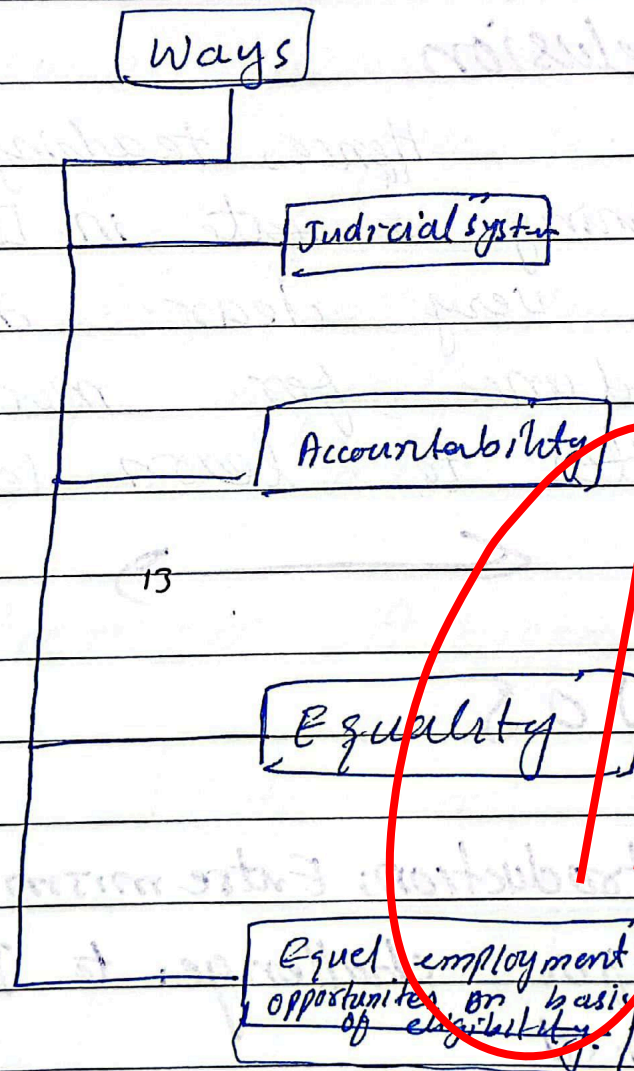 Ways
Judicial system
Accountability
13
Equality
Equal employment
opportunites on basis
of eligibility.